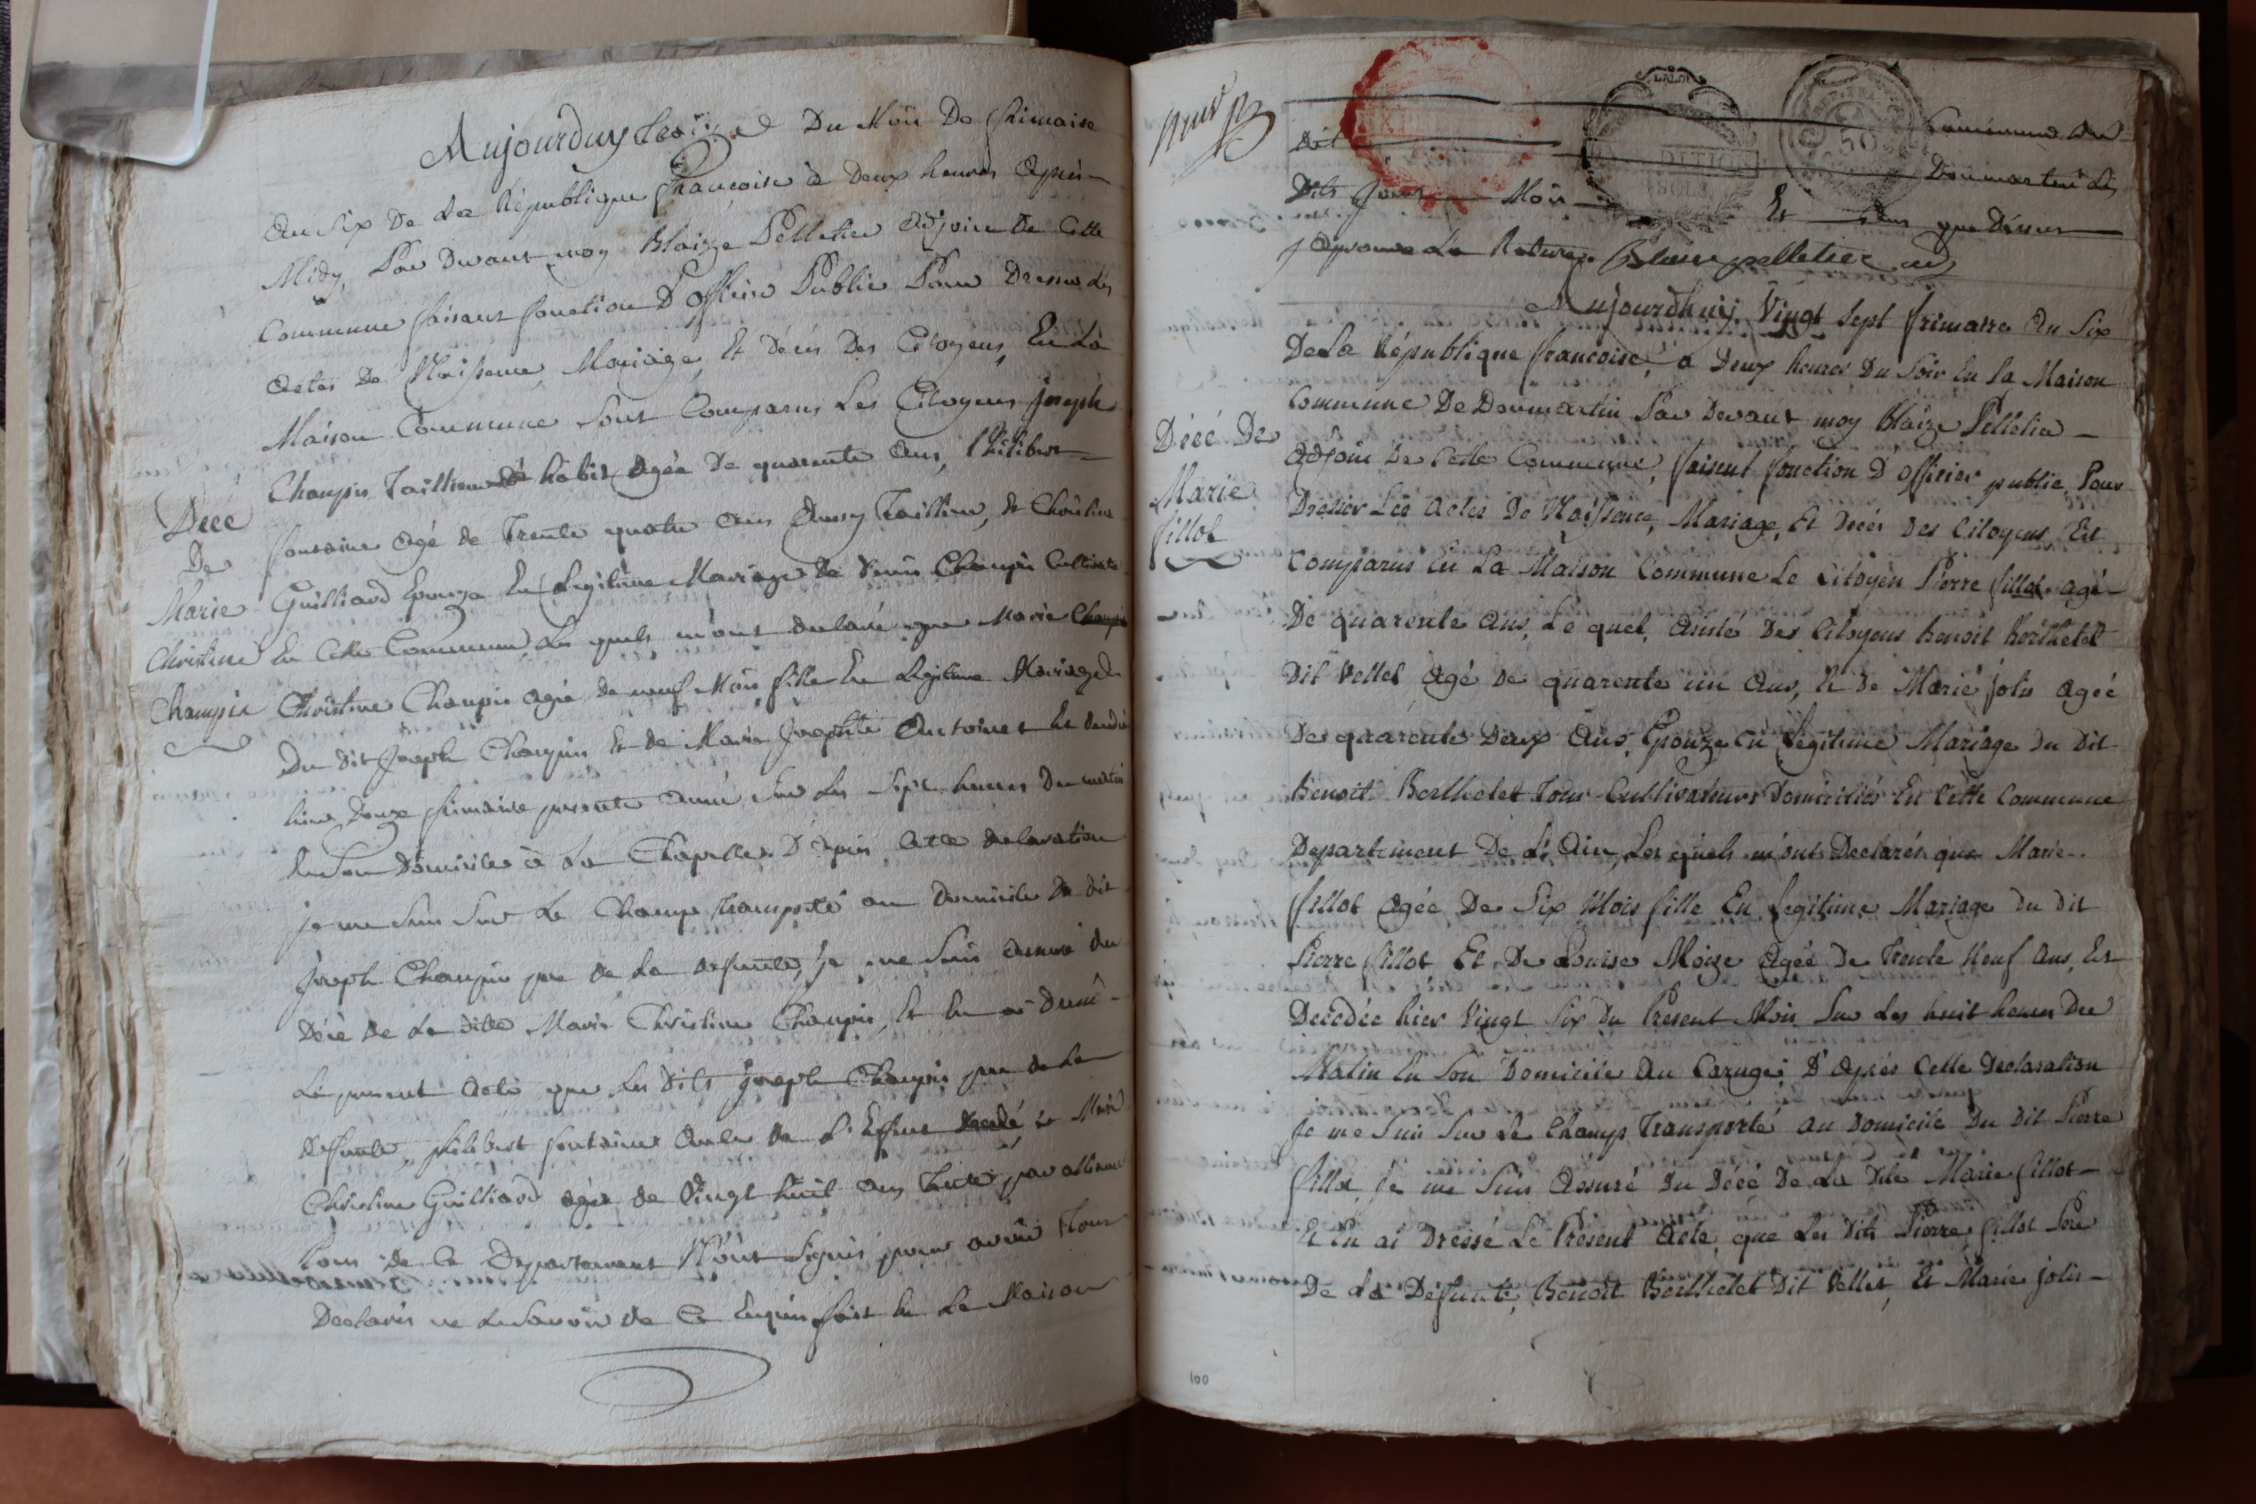 Aujourduy treize Du Mois De frimaire
An Six De La République francoise à Deux heures Après
Midy, Par Devant moy Blaize Pelletier Adjoin De Cette
Commune faisant fonction D'officier Public Pour Dresser Les
Actes De Naissence, Mariage, Et Décés Des Citoyens, En La
Maison Commune Sont Comparus Les Citoyens Joseph
Chanpin Taillieur d'habit, Agée De quarente Ans, Philibert
fontaine Agé de Trente quatre Ans Aussy Taillieur, Et Christine
Guilliard Epouze En Legitime Mariage De Denis Chanpin Cultivateur
En Cette Commune, Les quels m'ont declaré que Marie
Christine Chanpin Agée de neuf Mois fille En Legitime Mariage
Du Dit Joseph Chanpin Et de Marie Josephte Antoinet Est decedée
hier Douze frimaire presente année Sur Les Sept heures Du matin
En Son Domicile à La Chapelle, D'apres Cette declaration
je me Suis Sur Le Champ transporté au Domicile Du dit
Joseph Chanpin pere de La defunte, je me Suis assuré du
Décé De La ditte Marie Christine Chanpin, Et En ai Dressé
Le present Acte que Les Dits Joseph Chanpin pere de La
defunte, philibert fontaine Oncle de L'Effent decedé Et Marie
Christine Guilliard agée de Vingt huit ans Tante par alliance
Tous de Ce Departement N'ont Signés pour avoir Tous
Declarés ne Le Savoir de Ce Enquis fait En La Maison
Décé
De
Marie
Christine
Chanpin
Commune De
Dit Donmartin Les
Dits Jour Mois Et an que Dessus
J'approuve La Rature Blaize pelletier adj
Aujourdhuiy Vingt Sept frimaire An Six
De La République francoise, à Deux heures Du Soir En La Maison
Commune De Donmartin Par Devant moy Blaize Pelletier
Adjoin De Cette Commune, faisent fonction D'officier public, Pour
Dresser Les Actes De Naissence, Mariage, Et Decés Des Citoyens, Est
Comparus En La Maison Commune Le Citoyen Pierre fillot agé
De quarente Ans, Le quel, Assisté Des Citoyens Benoit Berthelet
Dit Vellet Agé De quarente un Ans, Et De Marie Jolis Ageé
De quarente Deux Ans, Epouze En Legitime Mariage Du Dit
Benoit Berthelet Tous Cultivateurs Domicilies En Cette Commune
Departement De L'Ain, Les quels m'ont Declarés que Marie
fillot Agée De Six Mois fille En Legitime Mariage Du Dit
Pierre fillot, Et De Louise Moize Ageé De Trente Neuf Ans, Est
Decedée hier Vingt Six Du Present Mois, Sur Les huit heures Du
Matin En Son Domicile Au Carruge, D'aprés Cette Declaration
Je me Suis Sur Le Champ Transporté Au Domicile Du Dit Pierre
fillot, Je me Suis Assuré Du Décé De La Dite Marie fillot
Et En ai Dressé Le Present Acte, que Les Dits Pierre fillot Pere
De La Defunte, Benoit Berthelet Dit Vellet, Et Marie Jolis
Décé De
Marie
fillot
100